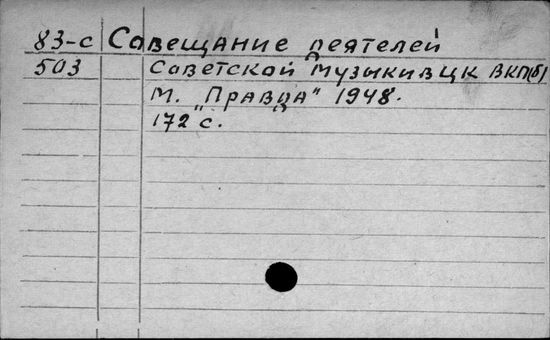 83-с Совещание деятелей
503 советской музыки в ЦК ВКП(б)
М. "Правда" 1948.
172 с.